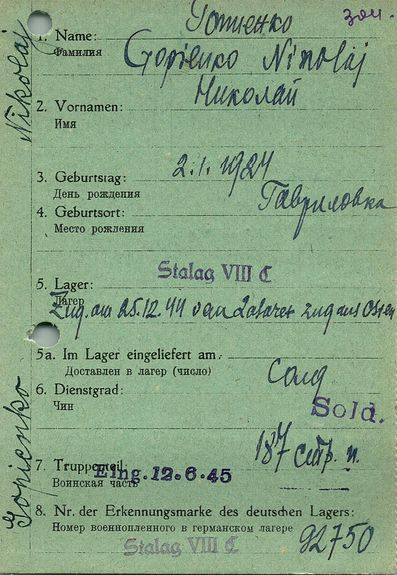 зон.
1. Name:
Фамилия
Gopienko Nikolaj
Николай
2. Vornamen:
Имя
3. Geburtstag: 2.1.1924
День рождения
4. Geburtsort: Гавриловка
Место рождения
Stalag VIII C
5. Lager:
Лагерь
Zug. am 25.12.44 van Lazaret zug aus Osten
5a. Im Lager eingeliefert am
Доставлен в лагерь (число)
6. Dienstgrad: Солд
Чин
Sold.
7. Truppenteil 187 стр. п.
Воинская часть
Eing. 12.6.45
8. Nr. der Erkennungsmarke des deutschen Lagers:
Номер военнопленного в германском лагере 92750
Stalag VIII C
Gopienko
Nikolaj